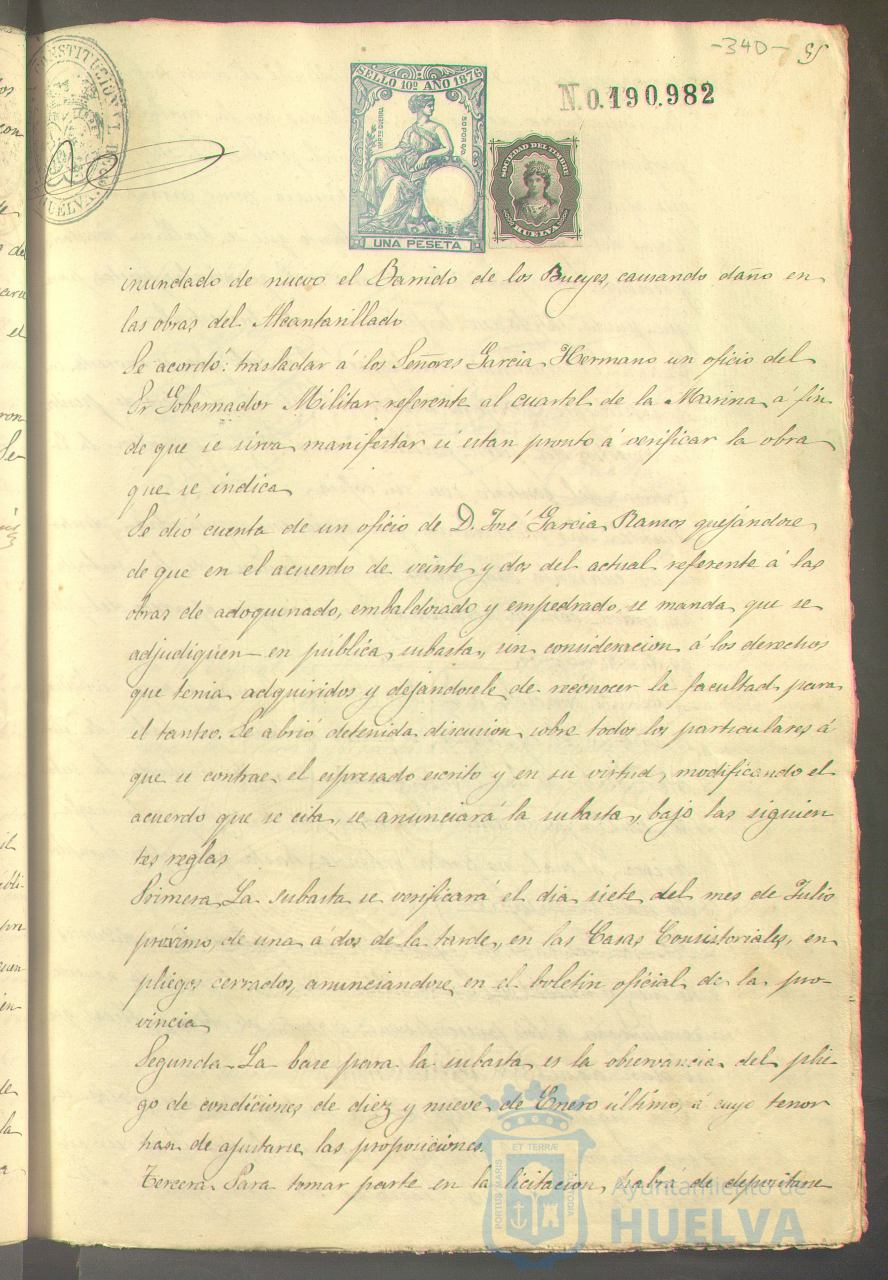 -340-
55
CONSTITUCIONAL DE
HUELVA
SELLO 10º AÑO 1876
IMPTO GUERRA
50 POR 0/0
UNA PESETA
N.0.190.982
SOCIEDAD DEL TIMBRE
HUELVA
inundado de nuevo el Barrido de los Bueyes, causando daño en
las obras del Alcantarillado
Se acordó: trasladar á los Señores Garcia Hermano un oficio del
Sr Gobernador Militar referente al cuartel de la Marina á fin
de que se sirva manifestar si estan pronto á verificar la obra
que se indica
Se dió cuenta de un oficio de D. José Garcia Ramos quejándose
de que en el acuerdo de veinte y dos del actual referente á las
obras de adoquinado, embaldosado y empedrado, se manda que se
adjudiquen en pública subasta, sin consideracion á los derechos
que tenia adquiridos y dejándosele de reconocer la facultad para
el tanteo. Se abrió detenida discusion sobre todos los particulares á
que se contrae el espresado escrito y en su virtud, modificando el
acuerdo que se cita, se anunciará la subasta, bajo las siguien
tes reglas
Primera La subasta se verificará el dia siete del mes de Julio
próximo, de una á dos de la tarde, en las Casas Consistoriales, en
pliegos cerrados, anunciandose en el boletin oficial de la pro-
vincia
Segunda La base para la subasta es la observancia del plie-
go de condiciones de diez y nueve de Enero último, á cuyo tenor
han de ajustarse las proposiciones.
Tercera Para tomar parte en la licitacion, habrá de depositarse
PORTUS MARIS
ET TERRÆ
CUSTODIA
Ayuntamiento de
HUELVA